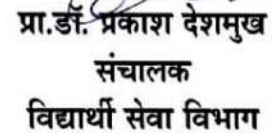 प्रा.डॉ. प्रकाश देशमुख
संचालक
विद्यार्थी सेवा विभाग